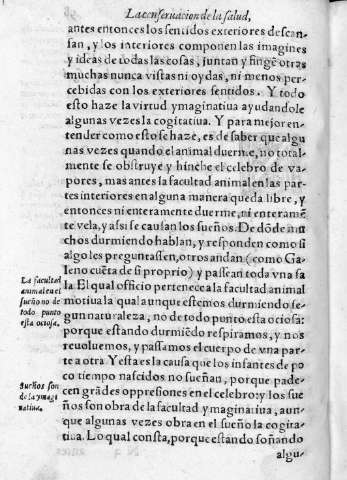 La conseruacion de la salud,
antes entonces los sentidos exteriores descan-
san, y los interiores componen las imagines
y ideas de todas las cosas, juntan y fingẽ otras
muchas nunca vistas ni oydas, ni menos per-
cebidas con los exteriores sentidos. Y todo
esto haze la virtud ymaginatiua ayudandole
algunas vezes la cogitatiua. Y para mejor en-
tender como esto se haze, es de saber que algu
nas vezes quando el animal duerme, no total-
mente se obstruye y hinche el celebro de va-
pores, mas antes la facultad animal en las par-
tes interiores en alguna manera queda libre, y
entonces ni enteramente duerme, ni enteramẽ
te vela, y assi se causan los sueños. De dõde mu
chos durmiendo hablan, y responden como si
algo les preguntassen, otros andan (como Ga-
leno cuẽta de si proprio) y passeã toda vna sa
la. El qual officio pertenece a la facultad animal
motiua la qual aunque estemos durmiendo se-
gun naturaleza, no de todo punto esta ociosa:
porque estando durmiẽdo respiramos, y nos
reuoluemos, y passamos el cuerpo de vna par-
te a otra. Y esta es la causa que los infantes de po
co tiempo nascidos no sueñan, porque pade-
cen grãdes oppresiones en el celebro: y los sue
ños son obra de la facultad ymaginatiua, aun-
que algunas vezes obra en el sueño la cogita-
tiua. Lo qual consta, porque estando soñando
algu-
La facultad
animal en el
sueño no de
todo punto
esta ociosa.
Sueños son
de la ymagi
natiua.